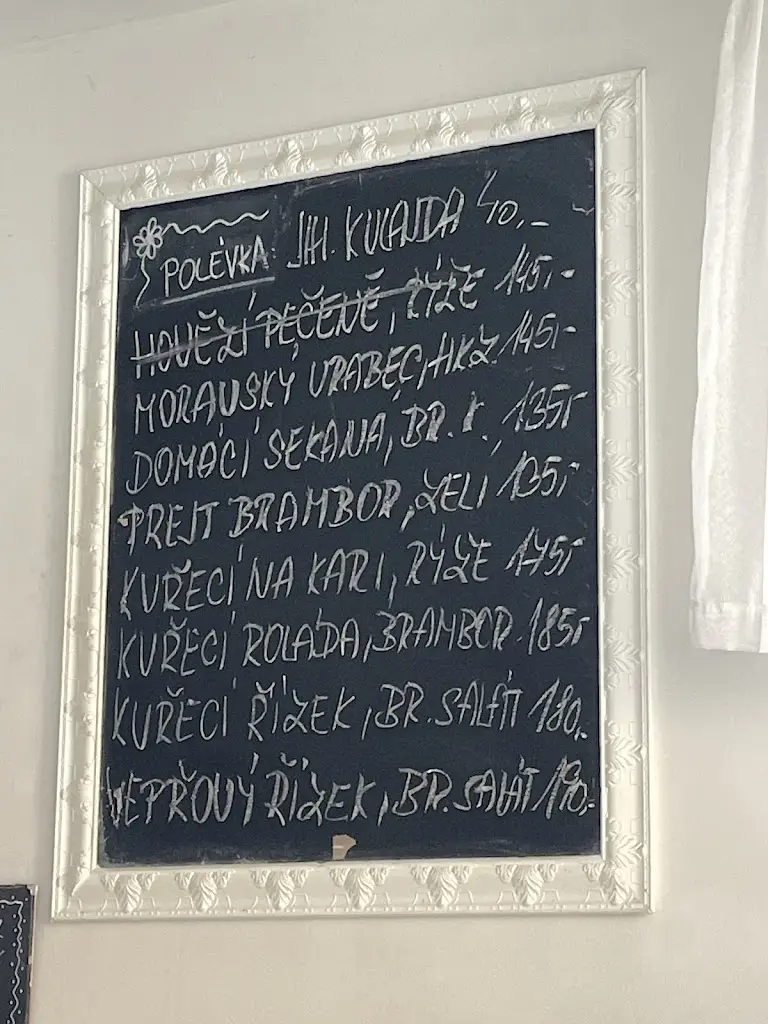 POLÉVKA: JIH. KULAJDA 40,-
HOVĚZÍ PEČENĚ, RÝŽE 145,-
MORAVSKÝ VRABEC, HKZ 145,-
DOMÁCÍ SEKANÁ, BR. K. 135,-
PREJT BRAMBOR, ZELÍ 135,-
KUŘECÍ NA KARI, RÝŽE 175,-
KUŘECÍ ROLÁDA, BRAMBOR. 185,-
KUŘECÍ ŘÍZEK, BR. SALÁT 180,-
VEPŘOVÝ ŘÍZEK, BR. SALÁT 190,-